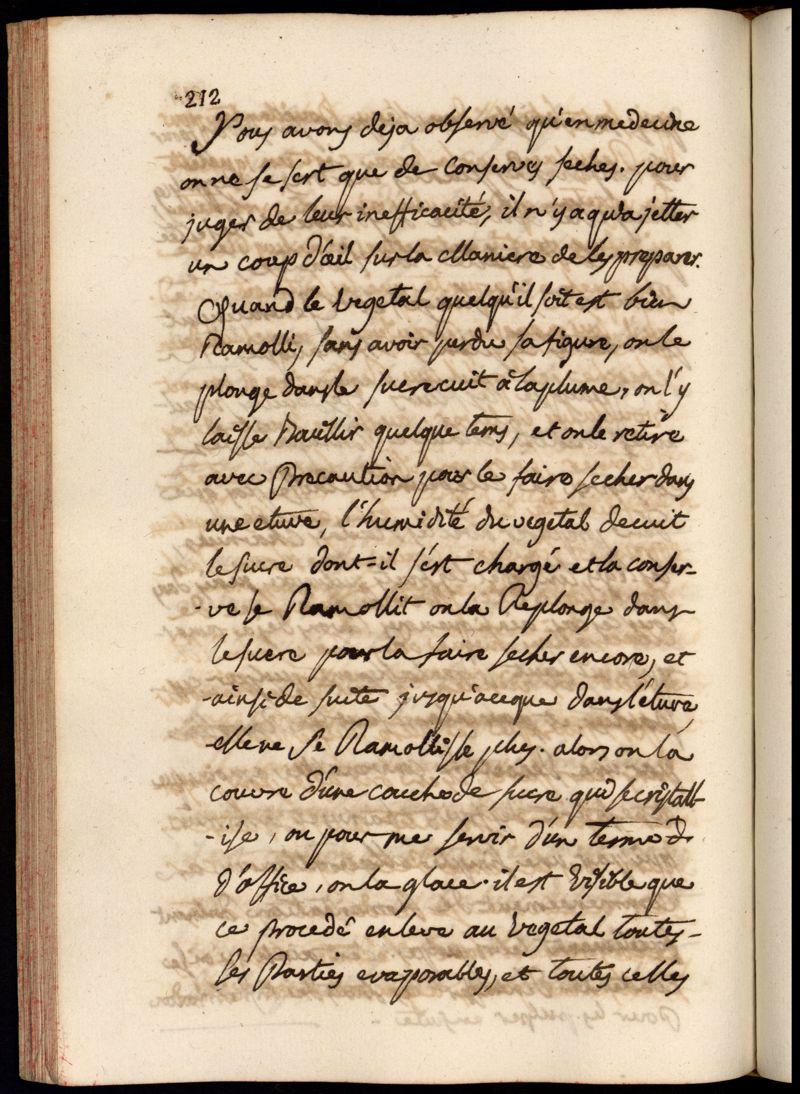 212
Nous avons deja observé qu'en medecine
on ne se sert que de Conserves seches. pour
juger de leur inefficacité, il n'y a qu'a jetter
un coup d'œil sur la Maniere de les preparer.
Quand le vegetal quelqu'il soit est bien
Ramolli, sans avoir perdu sa figure, on le
plonge dans le sucre cuit a la plume, on l'y
laisse Bouillir quelque tems, et on le retire
avec Precaution pour le faire secher dans
une etuve, l'humidité du vegetal decuit
le sucre dont=il s'est chargé et la conser-
-ve se Ramollit on la Replonge dans
le sucre pour la faire secher encore, et
-ainsi de suite jusqu'aceque dans l'étuve
elle ne se Ramollisse plus. alors on la
couvre d'une couche de sucre qui se cristall-
-ise, ou pour me servir d'un terme
d'office, on la glace. il est visible que
ce procedé enleve au vegetal toutes-
les Parties evaporables, et toutes celles